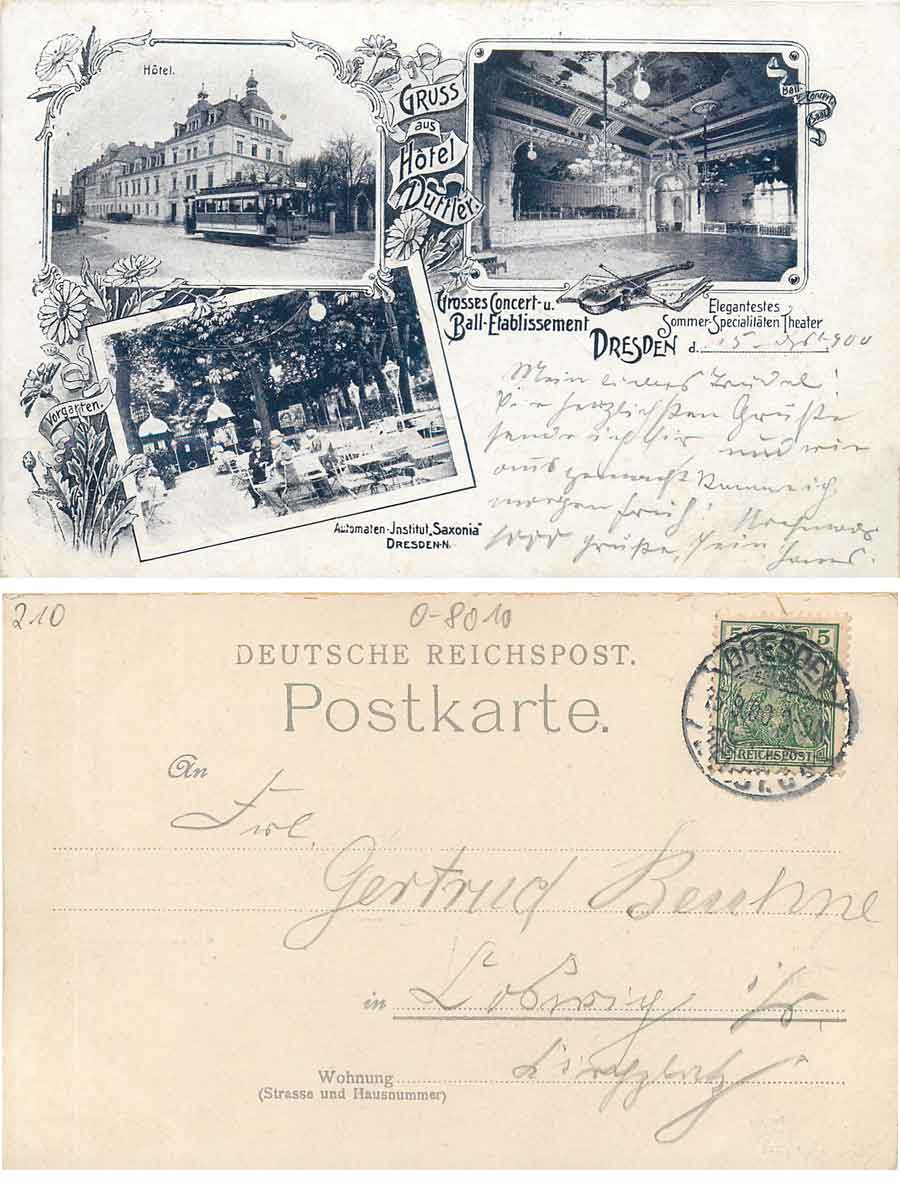 Hôtel.
GRUSS
aus
Hôtel
Duttler.
Ball-
u. Concert-
Saal
Vorgarten.
Grosses Concert- u.
Ball-Etablissement
Elegantestes
Sommer-Specialitäten Theater
DRESDEN d. 15. 900
Mein liebes Trudel!
Die herzlichsten Grüße
sende ich Dir und wie
ausgemacht komme ich
morgen früh! Nochmals
Grüße, Dein Hans.
Automaten-Institut „Saxonia"
DRESDEN-N.
210
0-8010
DEUTSCHE REICHSPOST.
Postkarte.
5 5
DRESDEN
REICHSPOST
An
Frl.
Gertrud
in
Wohnung
(Strasse und Hausnummer)